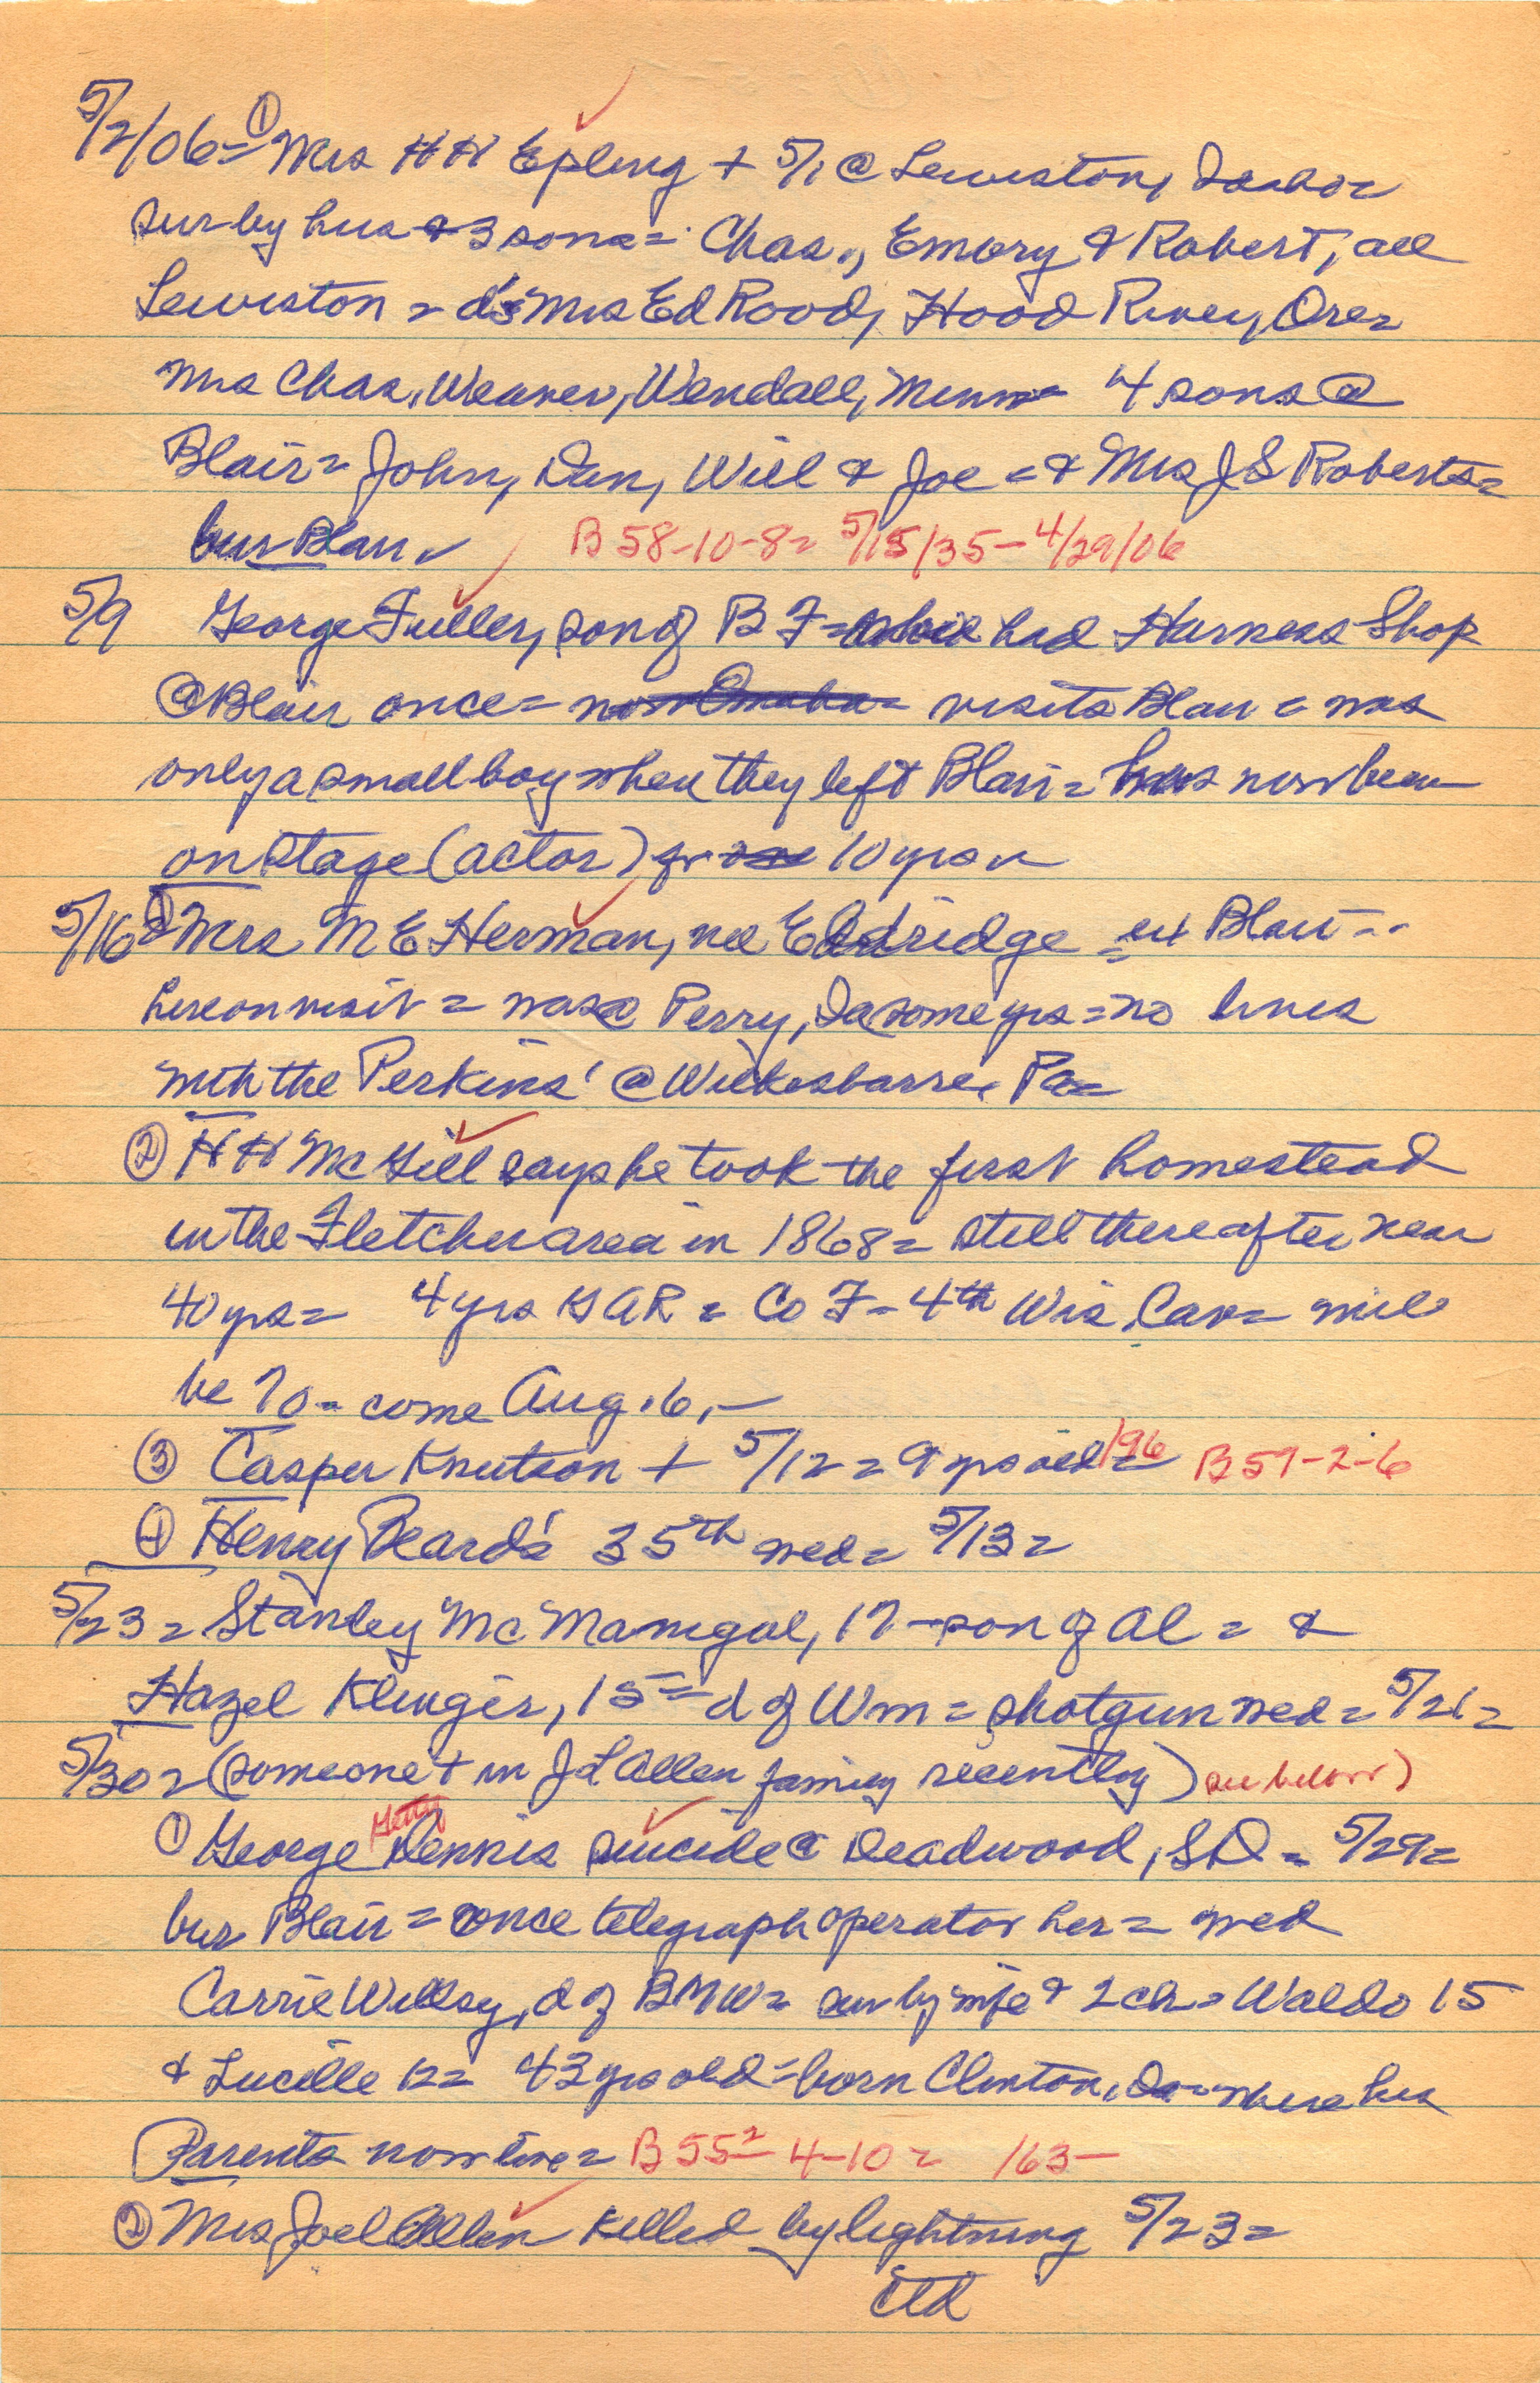 5/2/06= ① Mrs HH Epling + 5/1 @ Lewiston, Idaho=
sur by hus & 3 sons= Chas., Emory & Robert, all
Lewiston = d's Mrs Ed Rood, Hood River, Ore=
Mrs Chas. Weaver, Wendall, Minn= 4 sons @
Blair= John, Dan, Will & Joe = & Mrs J S Roberts=
bur Blair B 58-10-8= 5/15/35-4/29/06
5/9 George Fuller, son of B F= who had Harness Shop
@ Blair once= now Omaha= visits Blair = was
only a small boy when they left Blair = has now been
on stage (actor) for 10 yrs
5/16= ① Mrs M E Herman, nee Eldridge = ex Blair--
here on visit = was @ Perry, Ia some yrs = no lives
with the Perkins' @ Wilkesbarre, Pa=
② HH McGill says he took the first homestead
in the Fletcher area in 1868= still there after near
40 yrs= 4 yrs GAR = Co F- 4th Wis. Cav= will
be 70- come Aug. 6,-
③ Casper Knutson + 5/12= 9 yrs old= /96 B59-2-6
④ Henry Beard's 35th wed= 5/13=
5/23= Stanley McManigal, 17-son of Al = &
Hazel Klinger, 15= d of Wm = shotgun wed= 5/21=
5/30= (someone + in J L Allen family recently) see below)
① George Dennis suicide @ Deadwood, SD= 5/29=
bur Blair = once telegraph operator her= wed
Carrie Willsey, d of BMW= sur by wife & 2 ch= Waldo 15
& Lucille 12= 43 yrs old= born Clinton, Ia= where his
Parents now live= B 55²-4-10= /63-
② Mrs Joel Allen killed by lightning 5/23=
ctd